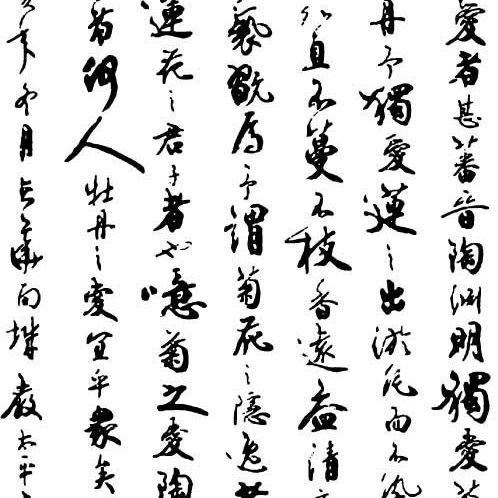 愛者甚蕃晉陶渊明獨愛
丹予獨愛蓮之出淤泥而不
外直不蔓不枝香遠益清
褻翫焉予謂菊花之隱逸
蓮花之君子者也噫菊之愛陶
者何人牡丹之愛宜乎衆矣
年冬月